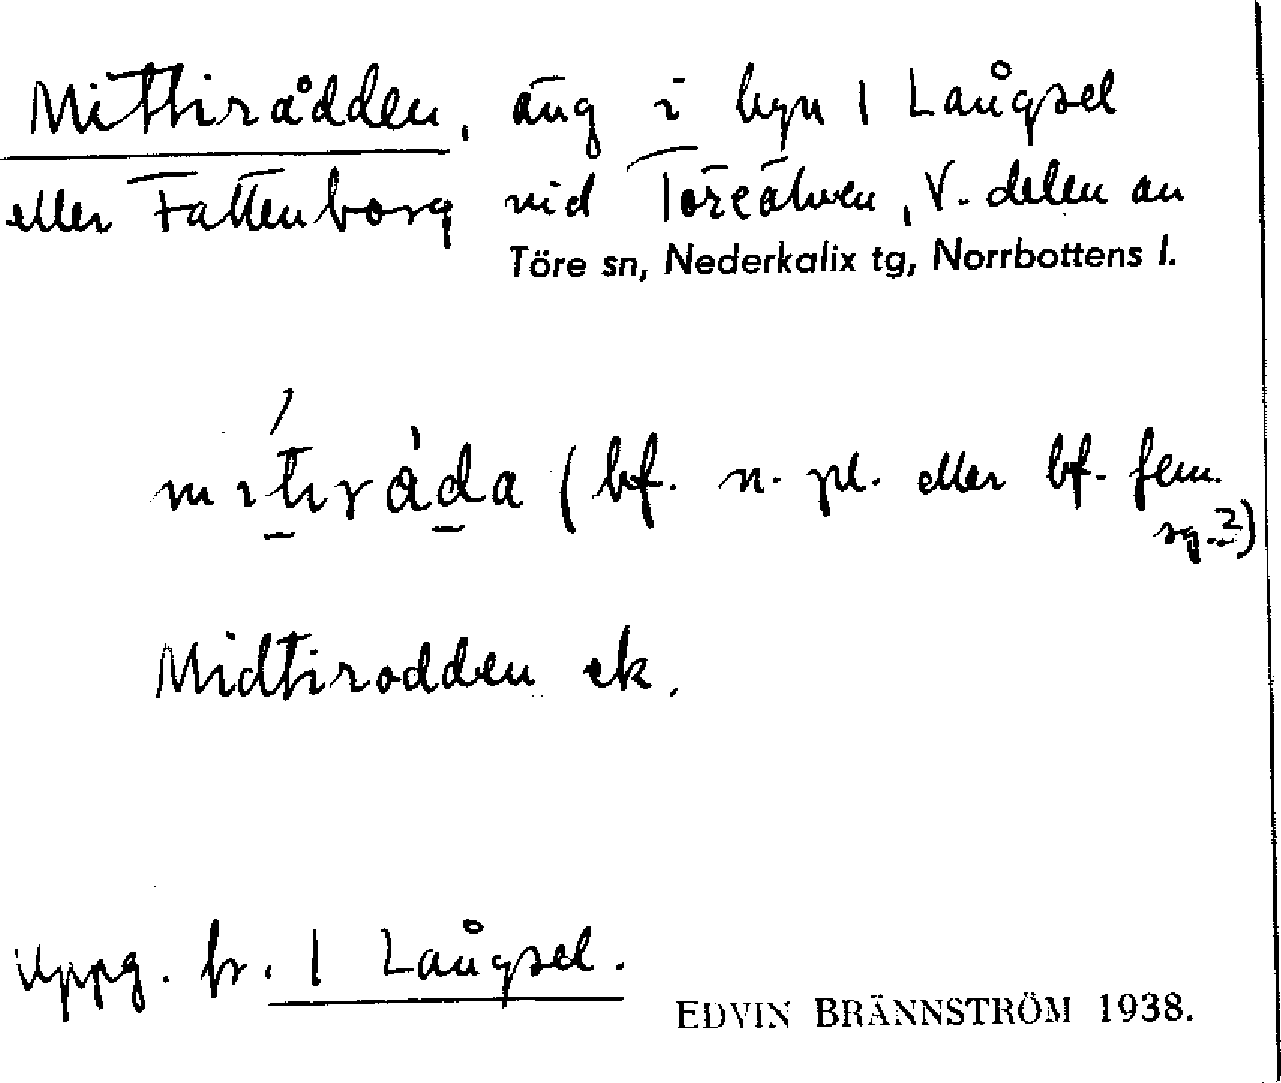 Mittirådden, äng i byn 1 Långsel
eller Fattenborg vid Töreälven, V. delen av
Töre sn, Nederkalix tg, Norrbottens l.
mítiråda (bf. n. pl. eller bf. fem.
sg.?)
Midtirodden ek.
Uppg. fr. 1 Långsel.
EDVIN BRÄNNSTRÖM 1938.